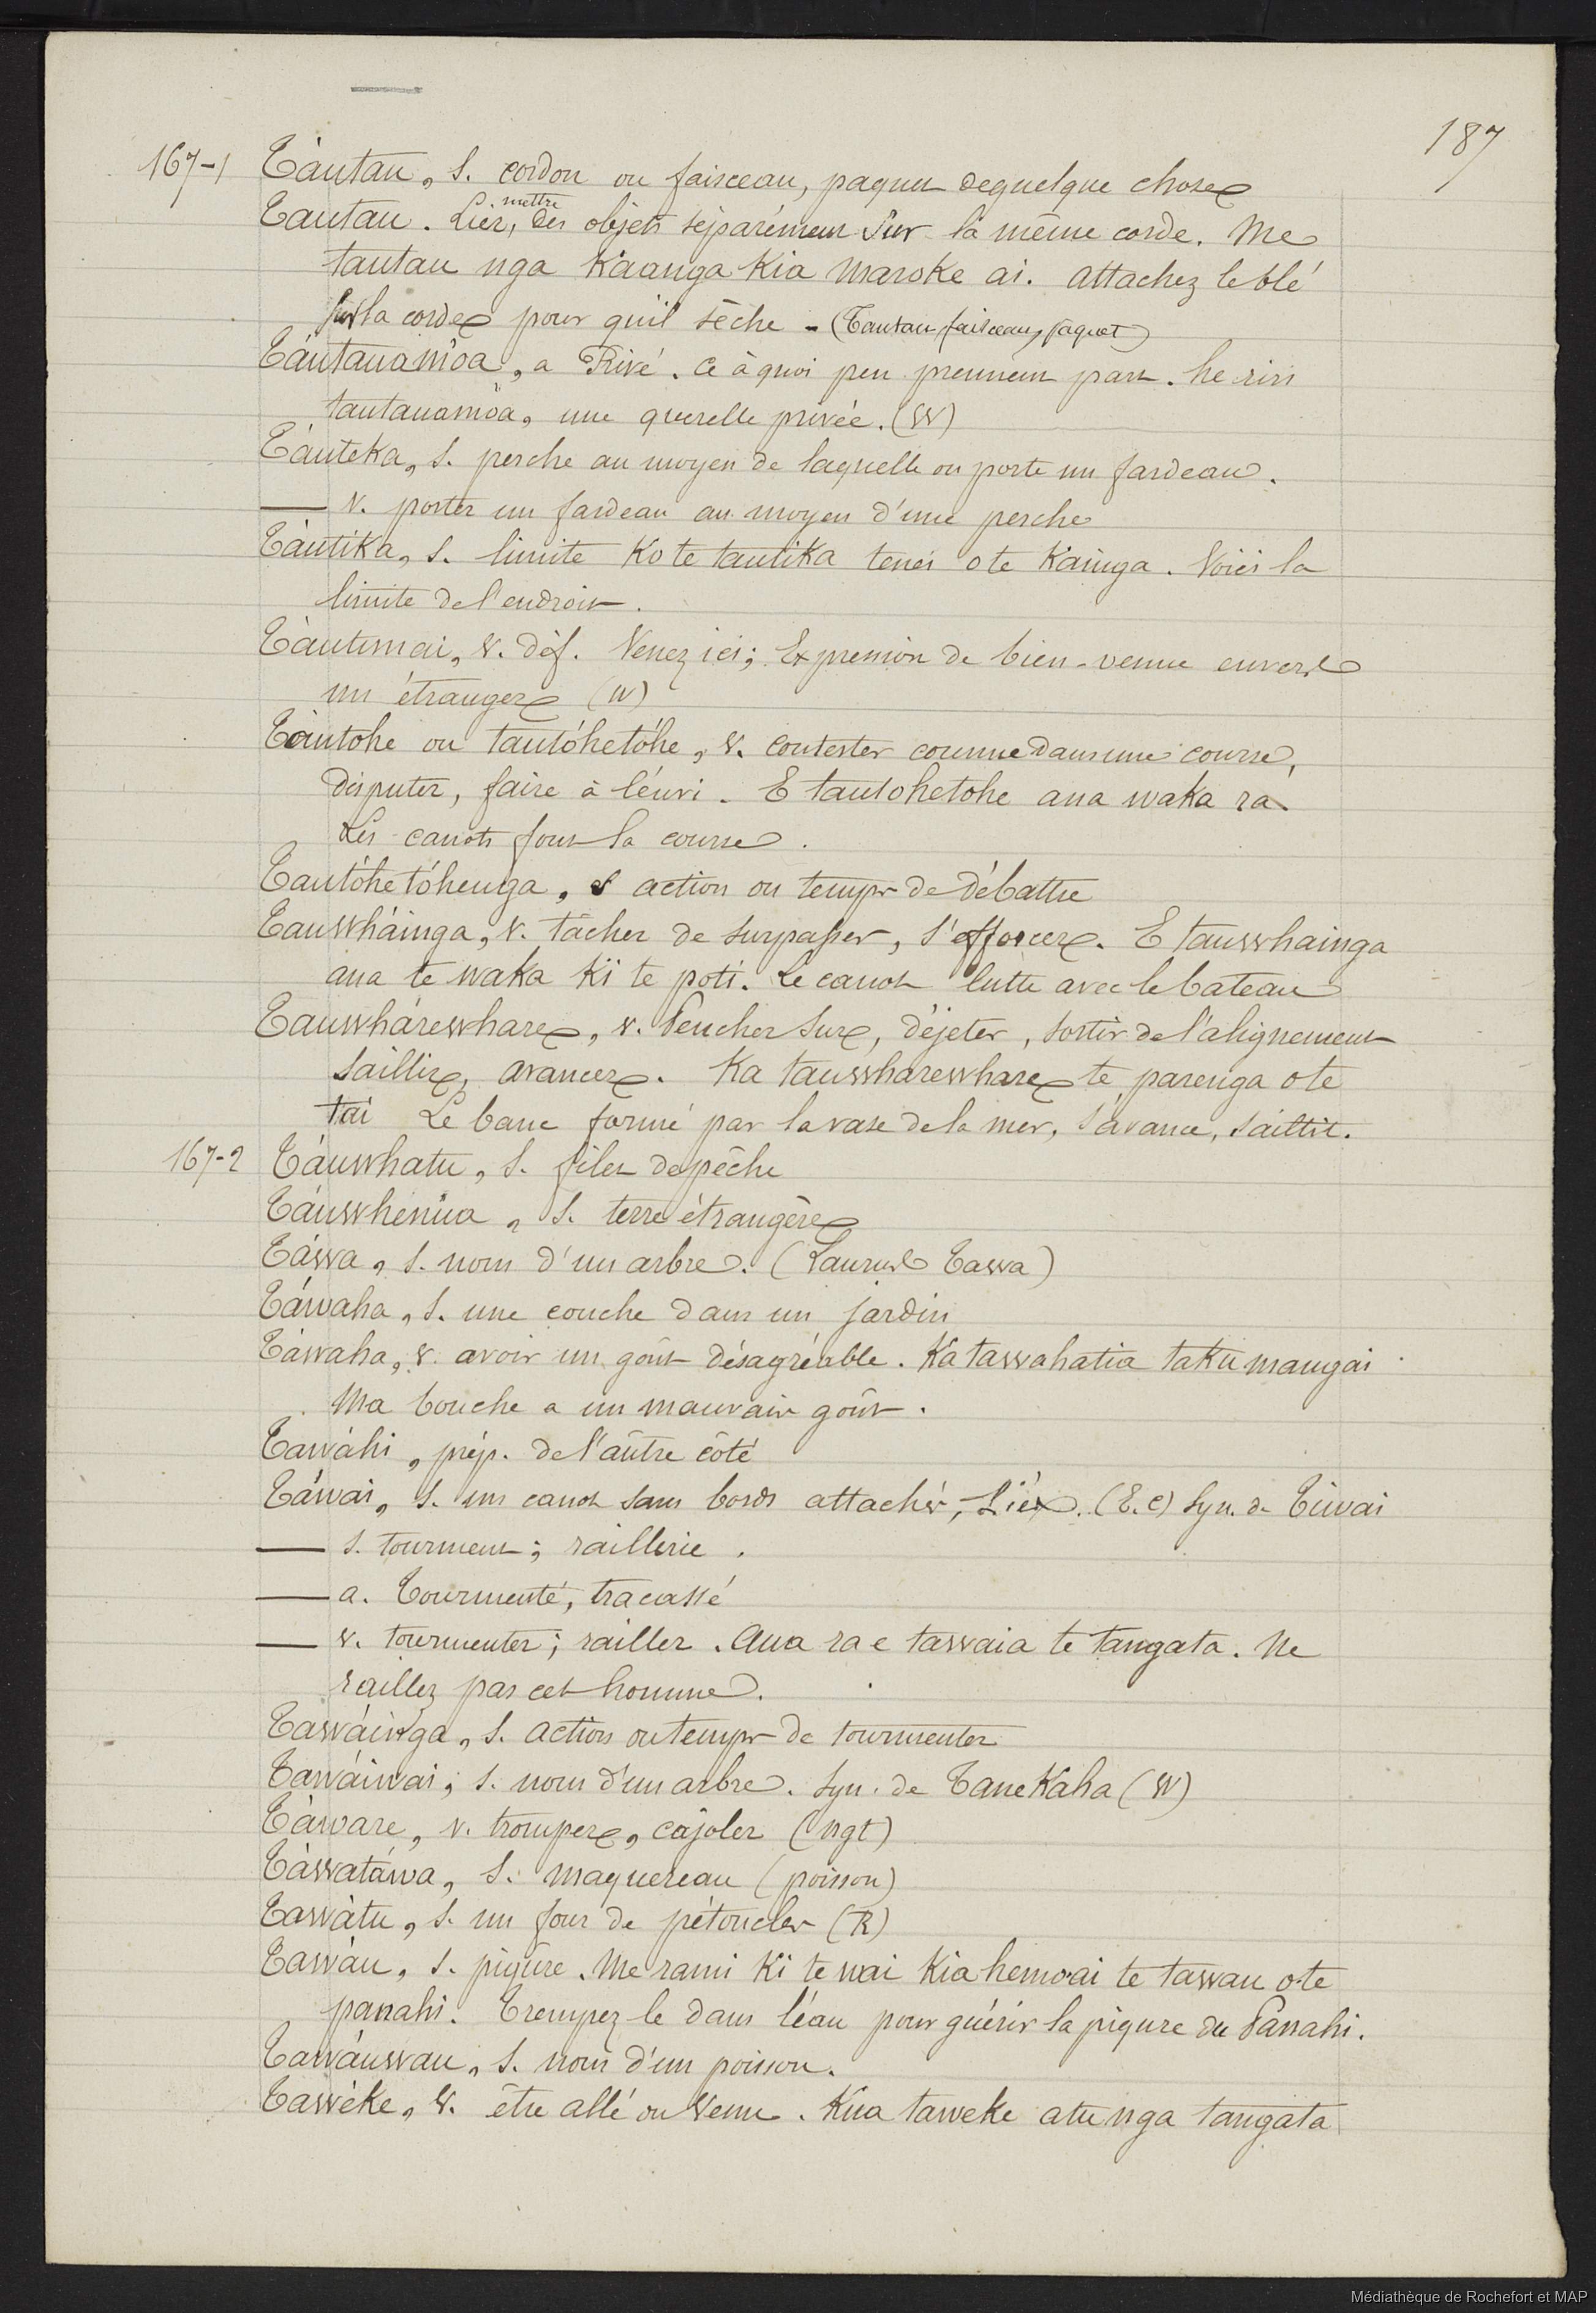 187
167-1 Táutau, s. cordon ou faisceau, paquet de quelque chose
Tautau. Lier, mettre des objets séparément sur la même corde. Me
tautau nga Kaanga Kia maroke ai. attachez le blé
sur la corde pour qu'il sèche - (Tautau faisceau, paquet)
Táutauámoa, a Privé. Ce à quoi peu prennent part. he riri
tautauamoa, une querelle privée. (W)
Táuteka, s. perche au moyen de laquelle on porte un fardeau.
— v. porter un fardeau au moyen d'une perche
Táutika, s. limite Ko te tautika tenei o te Kainga. Voici la
limite de l'endroit.
Táutimai, v. déf. Venez ici; Expression de bien-venue envers
un étranger (W)
Táutohe ou tautóhetóhe, v. contester comme dans une course,
disputer, faire à l'envi. E tautohetohe ana waka ra.
Les canots font la course.
Tautóhetóhenga, s action ou temps de débattre
Tauwháinga, v. tâcher de surpasser, s'efforcer. E tauwhainga
ana te waka Ki te poti. Le canot lutte avec le bateau
Tauwhárewhare, v. Pencher sur, déjeter, sortir de l'alignement
saillir, avancer. Ka tauwharewhare te parenga o te
tai Le banc formé par la vase de la mer, s'avance, saillit.
167-2 Táuwhatu, s. filet de pêche
Táuwhenúa, s. terre étrangère
Táwa, s. nom d'un arbre. (Laurus Tawa)
Táwaha, s. une couche dans un jardin
Táwaha, v. avoir un goût désagréable. Ka tawahatia taku mangai
Ma bouche a un mauvais goût.
Tawáhi, prép. de l'autre côté
Táwai, s. un canot sans bords attachés, Liés. (E.C) Syn. de Tiwai
— s. tourment; raillerie.
— a. Tourmenté, tracassé
— v. tourmenter; railler. Aua ra e tawaia te tangata. Ne
raillez pas cet homme.
Tawáinga, s. action ou temps de tourmenter
Tawáiwai, s. nom d'un arbre. Syn. de TaneKaha (W)
Táware, v. tromper, cajoler (ngt)
Táwatáwa, s. maquereau (poisson)
Tawátu, s. un four de pétoncles (R)
Tawáu, s. piqûre. Me rami Ki te wai Kia hemo ai te tawau o te
panahi. Trempez-le dans l'eau pour guérir la piqure du Panahi.
Tawáuwau, s. nom d'un poisson.
Tawéke, v. être allé ou venu. Kua taweke atu nga tangata
Médiathèque de Rochefort et MAP